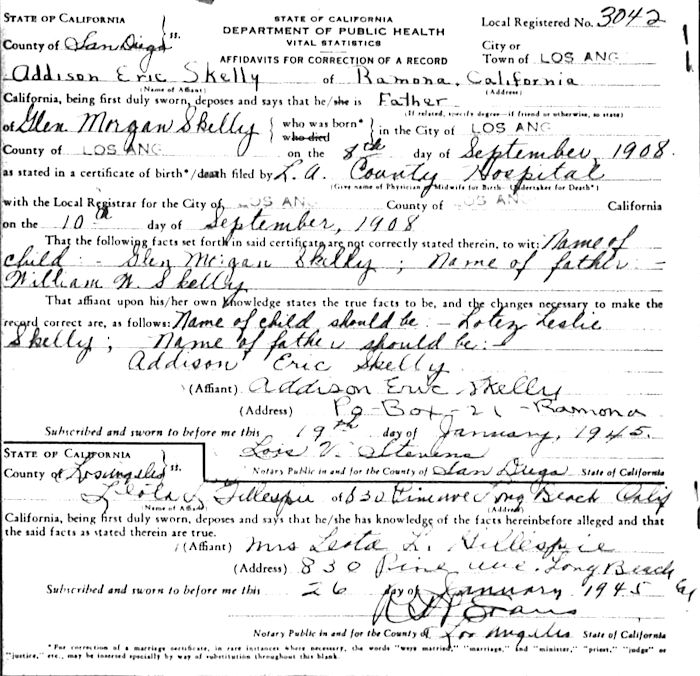 STATE OF CALIFORNIA
County of San Diego } ss.
STATE OF CALIFORNIA
DEPARTMENT OF PUBLIC HEALTH
VITAL STATISTICS
AFFIDAVITS FOR CORRECTION OF A RECORD
Local Registered No. 3042
City or
Town of LOS ANG
Addison Eric Skelly of Ramona, California
(Name of Affiant) (Address)
California, being first duly sworn, deposes and says that he/she is Father
(If related, specify degree—if friend or otherwise, so state)
of Glen Morgan Skelly { who was born* who died } in the City of LOS ANG
County of LOS ANG on the 8th day of September, 1908.
as stated in a certificate of birth*/death filed by L. A. County Hospital
(Give name of Physician or Midwife for Birth—Undertaker for Death*)
with the Local Registrar for the City of LOS ANG County of OS ANG California
on the 10th day of September, 1908
That the following facts set forth in said certificate are not correctly stated therein, to wit: Name of
child:- Glen Morgan Skelly; Name of father:-
William W. Skelly
That affiant upon his/her own knowledge states the true facts to be, and the changes necessary to make the
record correct are, as follows: Name of child should be:- Lotez Leslie
Skelly; Name of father should be:-
Addison Eric Skelly
(Affiant) Addison Eric Skelly
(Address) Po-Box-21-Ramona
Subscribed and sworn to before me this 19th day of January, 1945.
Lois V. Stevens
Notary Public in and for the County of San Diego State of California
STATE OF CALIFORNIA
County of Los Angeles } ss.
Leota L. Gillespie of 830 Pine ave Long Beach Calif
(Name of Affiant) (Address)
California, being first duly sworn, deposes and says that he/she has knowledge of the facts hereinbefore alleged and that
the said facts as stated therein are true.
(Affiant) Mrs Leota L. Gillespie
(Address) 830 Pine ave. Long Beach Cal
Subscribed and sworn to before me this 26 day of January, 1945
Evans
Notary Public in and for the County of Los Angeles State of California
*For correction of a marriage certificate, in rare instances where necessary, the words "were married," "marriage," and "minister," "priest," "judge" or
"justice," etc., may be inserted specially by way of substitution throughout this blank.